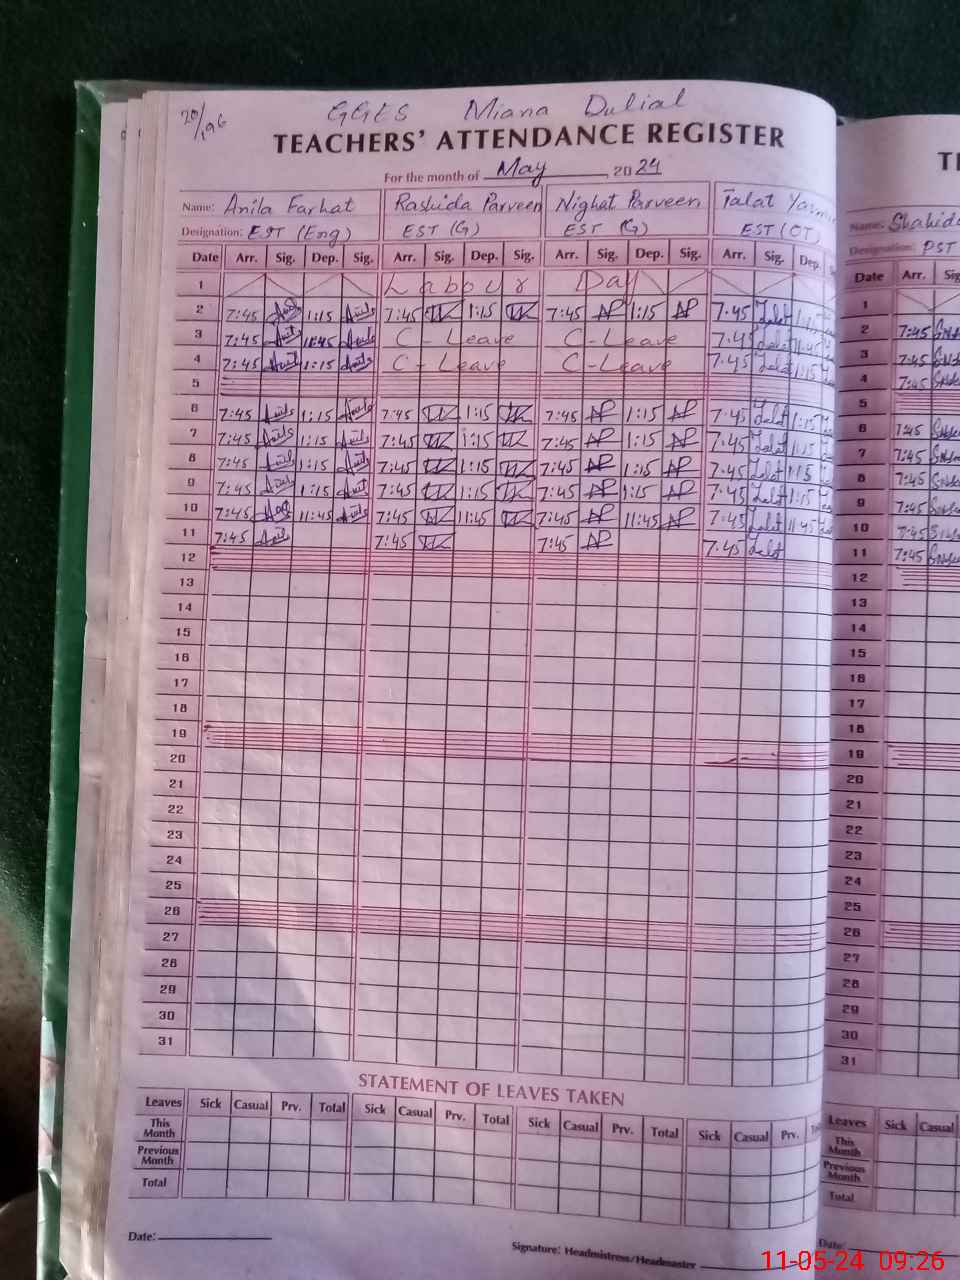 20/196 GGES Miana Dulial
TEACHERS' ATTENDANCE REGISTER
For the month of May 2024
Name: Anila Farhat Rashida Parveen Nighat Parveen Talat
Designation: EST (Eng) EST (G) EST (G) EST (OT)
Date Arr. Sig. Dep. Sig. Arr. Sig. Dep. Sig. Arr. Sig. Dep. Sig. Arr. Sig. Dep.
1 Labour Day
2 7:45 1:15 7:45 1:15 7:45 1:15 7:45 Talat 1:15
3 7:45 11:45 C-Leave C-Leave 7:45 Talat 11:45
4 7:45 1:15 C-Leave C-Leave 7:45 Talat 1:15
5
6 7:45 1:15 7:45 1:15 7:45 1:15 7:45 Talat 1:15
7 7:45 1:15 7:45 1:15 7:45 1:15 7:45 Talat 1:15
8 7:45 1:15 7:45 1:15 7:45 1:15 7:45 Talat 1:15
9 7:45 1:15 7:45 1:15 7:45 1:15 7:45 Talat 1:15
10 7:45 11:45 7:45 11:45 7:45 11:45 7:45 Talat 11:45
11 7:45 7:45 7:45 7:45 Talat
12
13
14
15
16
17
18
19
20
21
22
23
24
25
26
27
28
29
30
31
STATEMENT OF LEAVES TAKEN
Leaves Sick Casual Prv. Total Sick Casual Prv. Total Sick Casual Prv. Total Sick Casual Prv.
This Month
Previous Month
Total
Date:
Signature: Headmistress/Headmaster
Name: Shahida
Designation: PST
Date Arr.
1
2 7:45
3 7:45
4 7:45
5
6 7:45
7 7:45
8 7:45
9 7:45
10 7:45
11 7:45
12
13
14
15
16
17
18
19
20
21
22
23
24
25
26
27
28
29
30
31
Leaves Sick Casual
This Month
Previous Month
Total
Date:
11-05-24 09:26